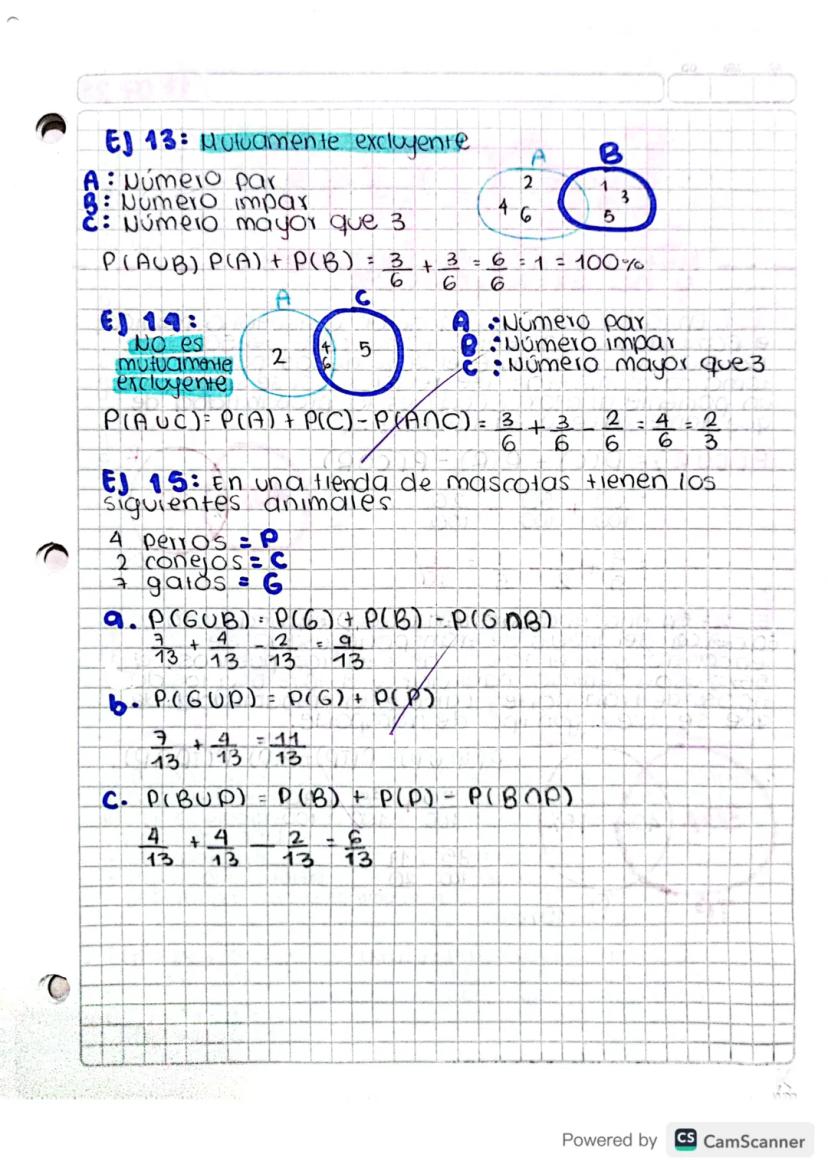 EJ 13: Mutuamente excluyente
A: Número par
B: Número impar
C: Número mayor que 3
A B
2 4 6 1 3 5
P(A∪B) P(A) + P(B) = 3/6 + 3/6 = 6/6 = 1 = 100%
EJ 14:
NO es
mutuamente
excluyente
A C
2 4 6 5
A: Número par
B: Número impar
C: Número mayor que 3
P(A∪C) = P(A) + P(C) - P(A∩C) = 3/6 + 3/6 - 2/6 = 4/6 = 2/3
EJ 15: En una tienda de mascotas tienen los
siguientes animales
4 perros = P
2 conejos = C
7 gatos = G
a. P(G∪B) = P(G) + P(B) - P(G∩B)
7/13 + 4/13 - 2/13 = 9/13
b. P(G∪P) = P(G) + P(P)
7/13 + 4/13 = 11/13
c. P(B∪P) = P(B) + P(P) - P(B∩P)
4/13 + 4/13 - 2/13 = 6/13
Powered by CS CamScanner